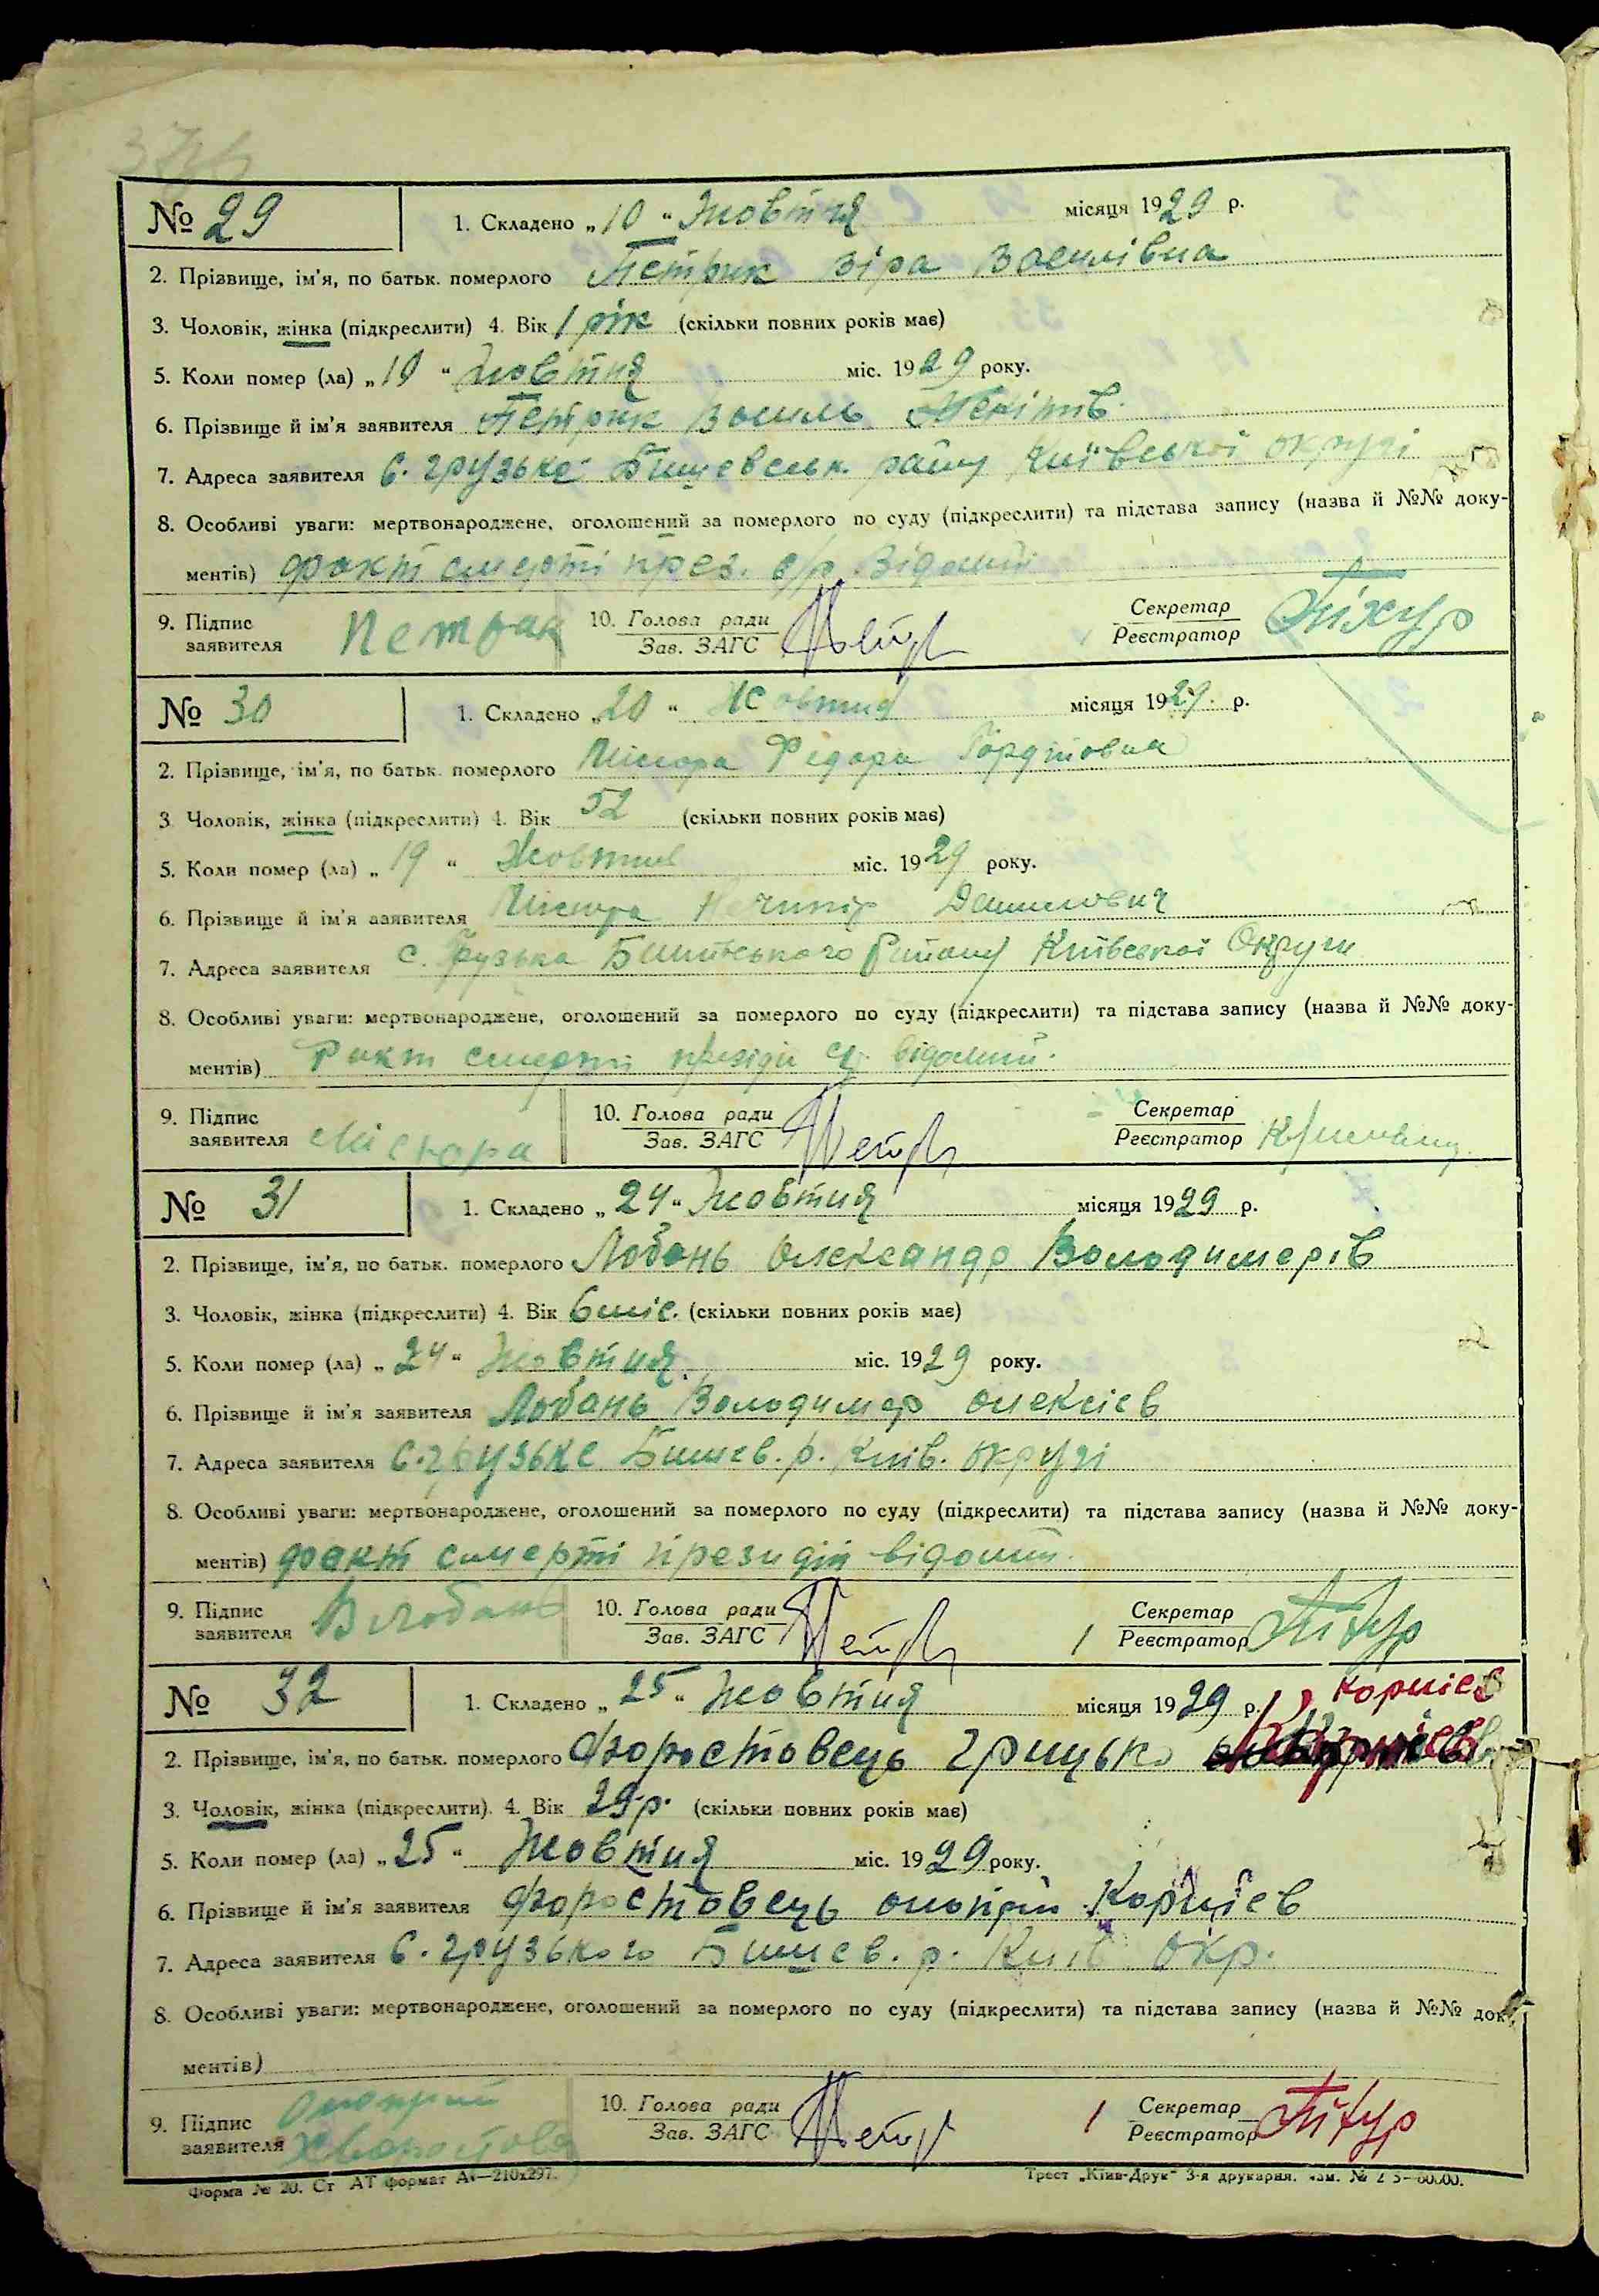 № 29 1. Складено „10“ Жовтня місяця 1929 р.
2. Прізвище, ім'я, по батьк. померлого Петрик Віра Василівна
3. Чоловік, жінка (підкреслити) 4. Вік 1 рік (скільки повних років має)
5. Коли помер (ла) „10“ Жовтня міс. 1929 року.
6. Прізвище й ім'я заявителя Петрик Василь
7. Адреса заявителя с. Грузьке Бишевськ. району Київської округі
8. Особливі уваги: мертвонароджене, оголошений за померлого по суду (підкреслити) та підстава запису (назва й №№ доку-
ментів) факт смерті през. с/р. Відомий
9. Підпис 10. Голова ради Секретар
заявителя Петрик Зав. ЗАГС Реєстратор
№ 30 1. Складено „20“ Жовтня місяця 1929. р.
2. Прізвище, ім'я, по батьк. померлого Місюра Федора Гордіїовна
3 Чоловік, жінка (підкреслити) 4. Вік 52 (скільки повних років має)
5. Коли помер (ла) „19“ Жовтня міс. 1929 року.
6. Прізвище й ім'я заявителя Місюра Ничипір Данилович
7. Адреса заявителя с. Грузька Бишівського Району Київської Округи
8. Особливі уваги: мертвонароджене, оголошений за померлого по суду (підкреслити) та підстава запису (назва й №№ доку-
ментів) Факт смерти президії відомий.
9. Підпис 10. Голова ради Секретар
заявителя Місюра Зав. ЗАГС Реєстратор
№ 31 1. Складено „24“ Жовтня місяця 1929 р.
2. Прізвище, ім'я, по батьк. померлого Лобань Олександр Володимерів
3. Чоловік, жінка (підкреслити) 4. Вік 6 міс. (скільки повних років має)
5. Коли помер (ла) „24“ Жовтня міс. 1929 року.
6. Прізвище й ім'я заявителя Лобань Володимер Олексієв
7. Адреса заявителя с. Грузьке Бишев. р. Київ. округі
8. Особливі уваги: мертвонароджене, оголошений за померлого по суду (підкреслити) та підстава запису (назва й №№ доку-
ментів) факт смерті президії відомий.
9. Підпис 10. Голова ради Секретар
заявителя В Лобань Зав. ЗАГС Реєстратор
№ 32 1. Складено „25“ Жовтня місяця 1929 р. Корнієв
2. Прізвище, ім'я, по батьк. померлого Форостовець Грицько
3. Чоловік, жінка (підкреслити). 4. Вік 29 р. (скільки повних років має)
5. Коли помер (ла) „25“ Жовтня міс. 1929 року.
6. Прізвище й ім'я заявителя Форостовець Онопрій Корнієв
7. Адреса заявителя с. Грузького Бишев. р. Київ Окр.
8. Особливі уваги: мертвонароджене, оголошений за померлого по суду (підкреслити) та підстава запису (назва й №№ доку-
ментів)
9. Підпис Онопрій 10. Голова ради Секретар
заявителя Зав. ЗАГС Реєстратор
Форма № 20. Ст АТ формат А4—210х297. Трест „Київ-Друк“ 3-я друкарня.